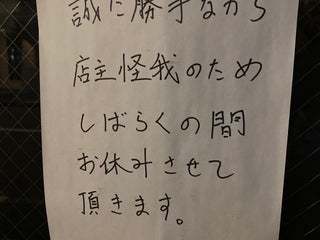 誠に勝手ながら
店主怪我のため
しばらくの間
お休みさせて
頂きます。